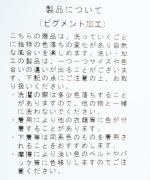 製品について
(ピグメント加工)
こちらの商品は、洗っていくごと
に独特の色落ちの変化があり自然
な風合いを楽しめます。洗い・加
工の製品は、一つ一つサイズや色
合いの違いが出ることがございま
す。下記の点にご注意の上、お取
り扱いください。
・洗濯の際は多少色落ちすること
がありますので、他の物と一緒
に洗わないでください。
・着用により他の衣類等に色が付
着することがあります。
・下着等は同系色のものを着用さ
れることをおすすめします。
・摩擦により淡い色のベルトやバ
ック等に色移りしますのでご注
意ください。